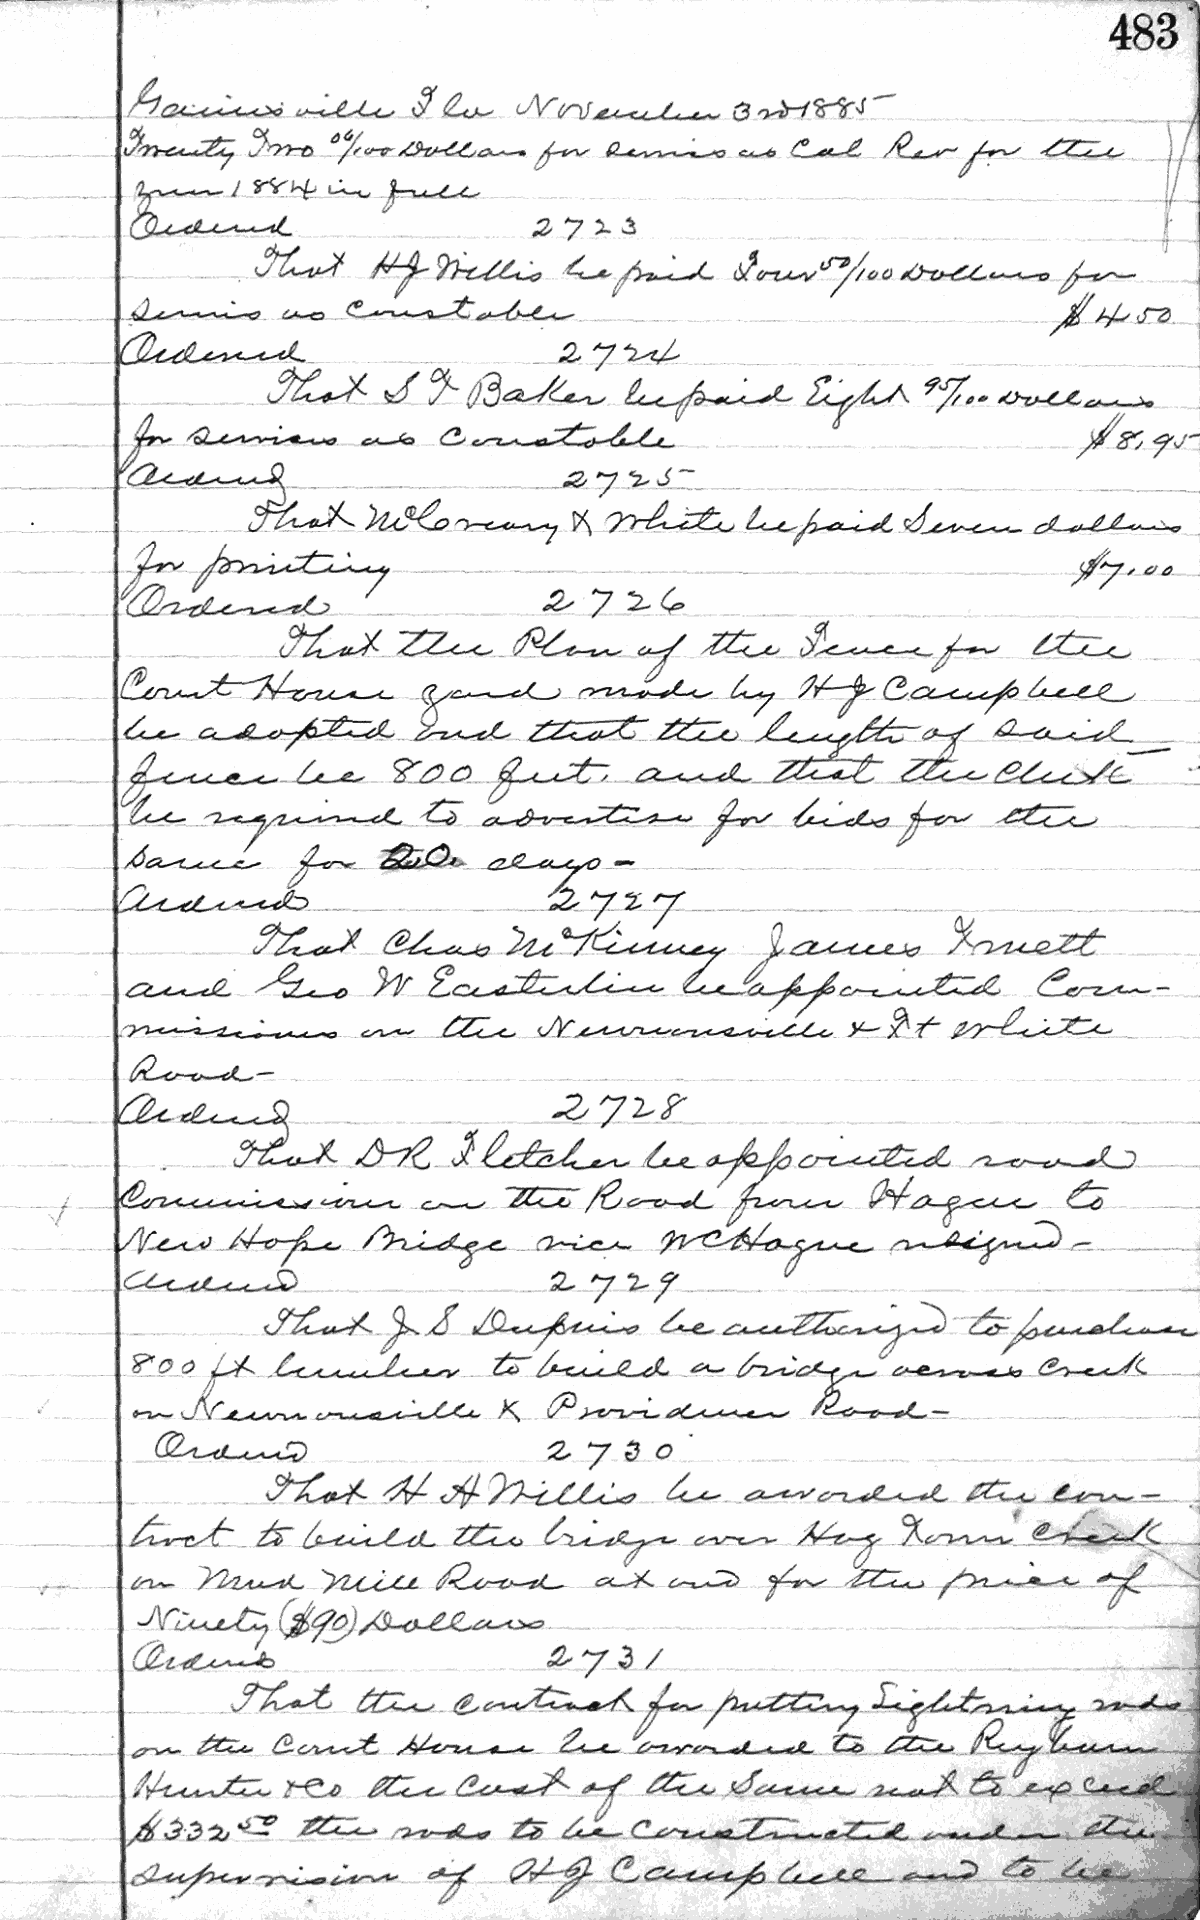 483
Gainesville Fla November 3rd 1885
Twenty Two 06/100 Dollars for servies as Col Rev for the
year 1884 in full
Ordered 2723
That H J Willis be paid Four 50/100 Dollars for
servis as Constable $4.50
Ordered 2724
That S F Baker be paid Eight 95/100 Dollars
for services as Constable $8.95
Ordered 2725
That McCreary & White be paid Seven dollars
for printing $7.00
Ordered 2726
That the Plan of the Fence for the
Court House yard made by H J Campbell
be adopted and that the length of said
fence be 800 feet. and that the Clerk
be required to advertise for bids for the
same for 20 days-
Ordered 2727
That Chas McKinney James
and Geo W Easterlin be appointed Com-
missioners on the Newnansville & Ft White
Road-
Ordered 2728
That D R Fletcher be appointed road
Commissioner on the Road from Hague to
New Hope Bridge vice W C Hague resigned-
Ordered 2729
That J S Dupuis be authorized to purchase
800 ft lumber to build a bridge across Creek
on Newnansville & Providence Road-
Ordered 2730
That H H Willis be awarded the con-
tract to build the bridge over Hog Town Creek
on Mud Mill Road at and for the price of
Ninety ($90) Dollars
Ordered 2731
That the contract for putting Lightning rods
on the Court House be awarded to the
Hunter & Co the Cost of the Same not to exceed
$332 50 the rods to be Constructed under the
supervision of H J Campbell and to be